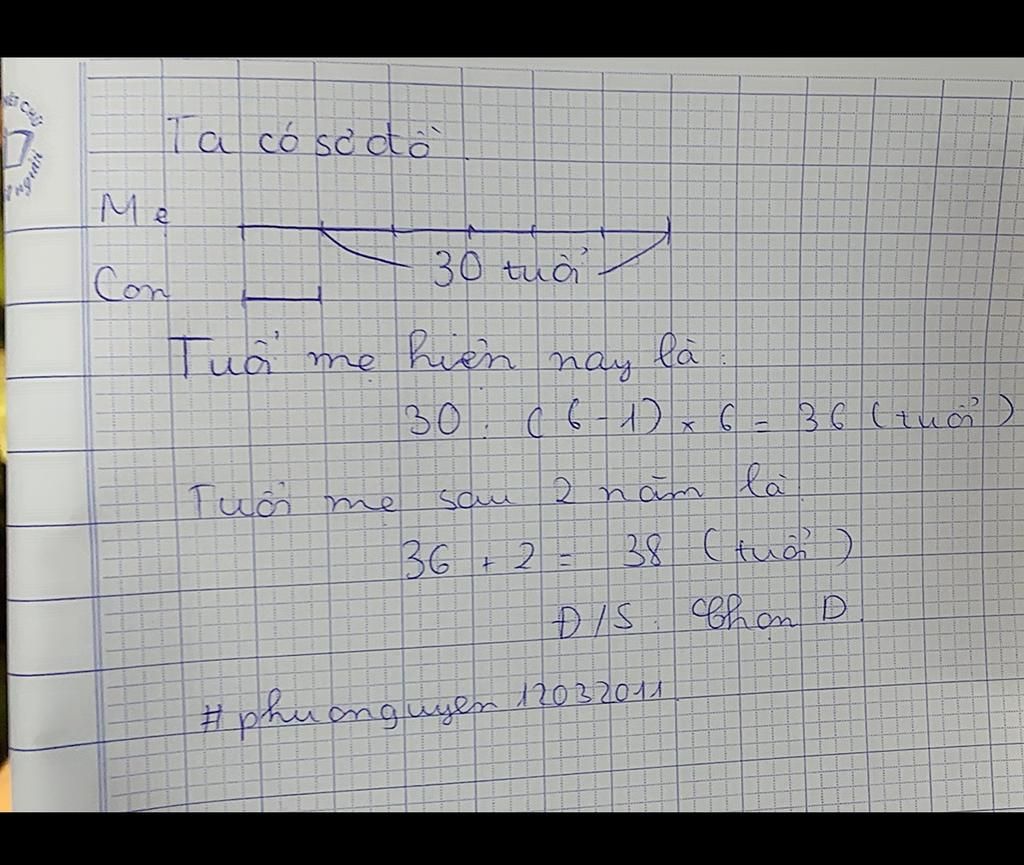 Ta có sơ đồ
Mẹ
30 tuổi
Con
Tuổi mẹ hiện nay là:
30 : (6-1) x 6 = 36 (tuổi)
Tuổi mẹ sau 2 năm là
36 + 2 = 38 (tuổi)
Đ/S: Chọn D
#phuonguyen12032011